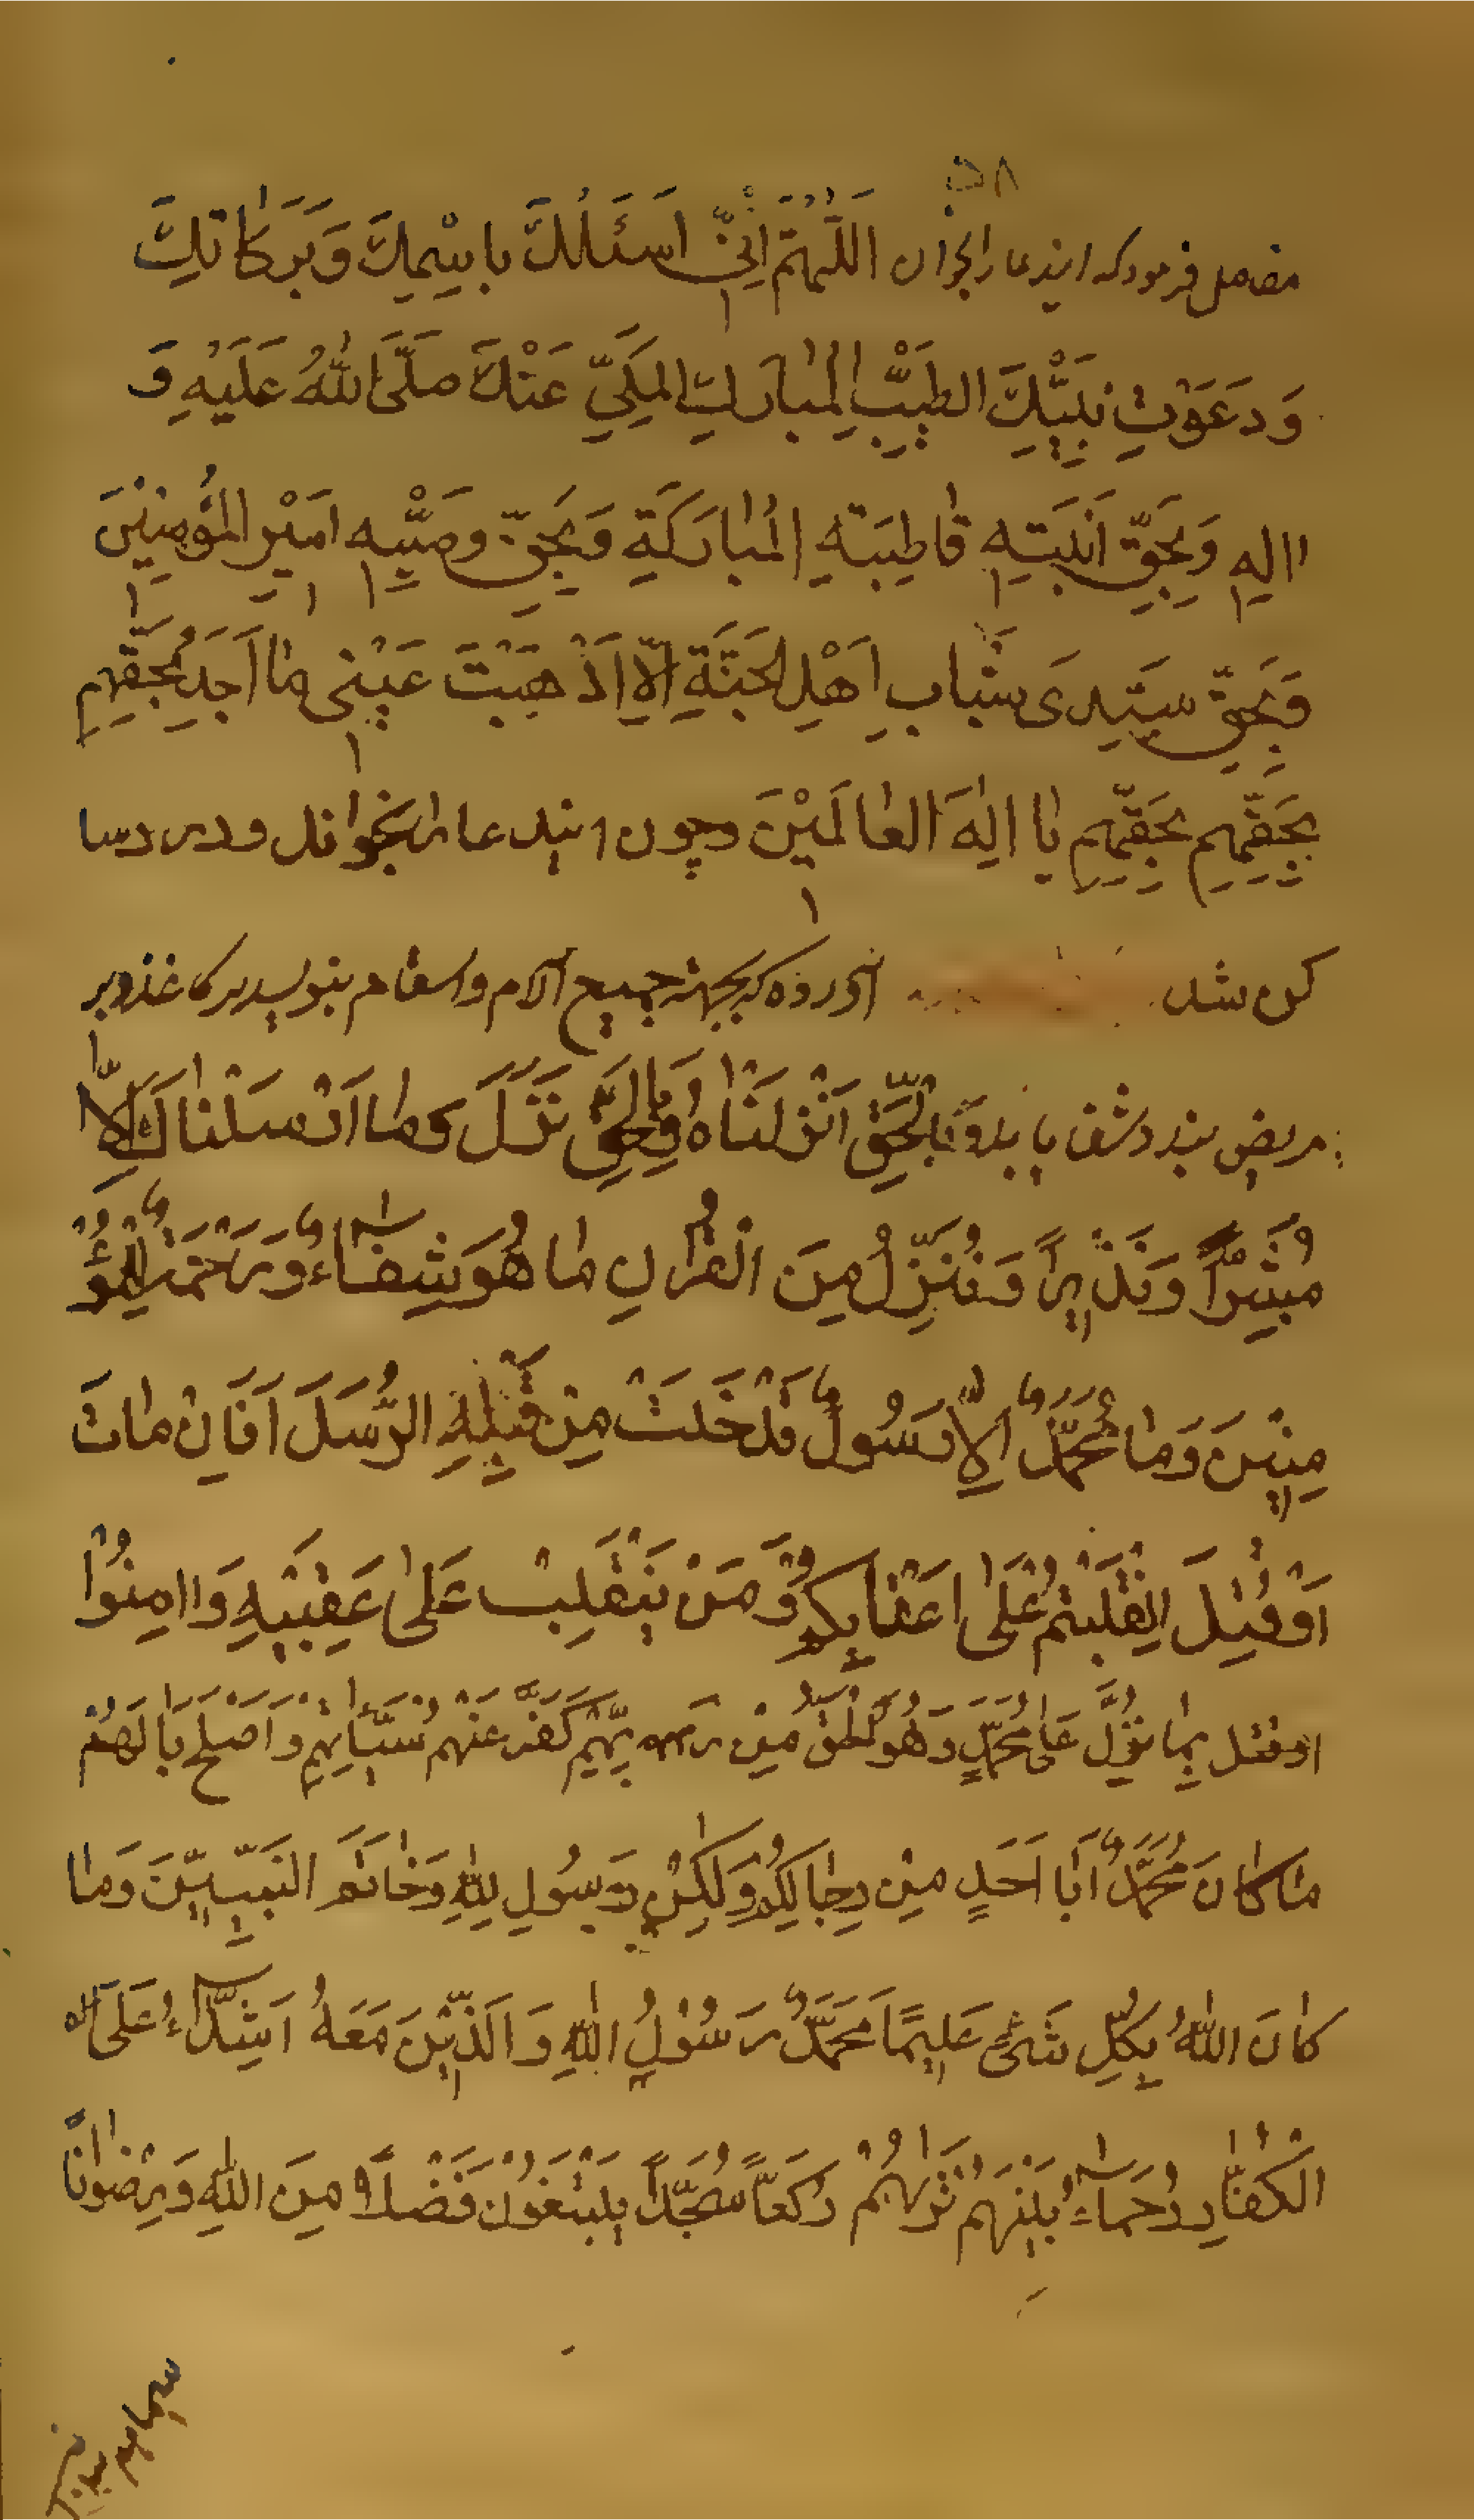 ۵۸
مفصل فرمود که ایندعا را بخوان اَللّٰهُمَّ اِنّیِ اَسْئَلُكَ بِاسْمِكَ وَبَرَكَاتِكَ
وَدَعَوْتِ نَبِیِّكَ الطَّیِّبِ الْمُبَارَكِ الْمَكِیِّ عَنْكَ صَلَّی اللّٰهُ عَلَیْهِ وَ
االِهِ وَبِحَقِّ اَبْنَتِهِ فٰاطِمَتِهِ الْمُبٰارَكَةِ وَبِحَقِّ وَصِّیِهِ اَمِیْرِ الْمُؤْمِنِیْنَ
وَبِحَقِّ سَیِّدَی شَبٰابِ اَهْلِ الْجَنَّةِ اِلّٰا اَذْهَبْتَ عَیْنی مٰا اَجِدُ بِحَقِّهِمِ
بِحَقِّهِمِ بِحَقِّهِمِ یٰا اِلٰهَ الْعٰالَمِیْنَ وچون ایندعا را بخواند ودر دسا
کن شد آورده که بجهت جمیع آلام واسقام بنویسد بر کاغذ وبر
مریض بندد شفا یابد وَبِالْحَقِّ اَنْزَلْنٰاهُ وَبِالْحَقِّ نَزَلَ وَمٰا اَرْسَلْنٰاكَ اِلّٰا
مُبَشِّراً وَنَذِیراً وَنُنَزِّلُ مِنَ الْقُرْاٰنِ مٰا هُوَ شِفٰاءٌ وَرَحْمَةٌ لِلْمُؤْ
مِنِیْنَ وَمٰا مُحَمَّدٌ اِلّٰا رَسُولٌ قَدْ خَلَتْ مِنْ قَبْلِهِ الرُّسُلَ اَفَاِنْ مٰاتَ
اَوْ قُتِلَ اِنْقَلَبْتُمْ عَلٰی اَعْقٰابِكُمْ وَمَنْ یَنْقَلِبْ عَلٰی عَقِبَیْهِ وَاامِنُوْا
بِمٰا نُزِّلَ عَلٰی مُحَمَّدٍ وَهُوَ الْحَقُّ مِنْ رَبِّهِمْ كَفَّرَ عَنْهُمْ سَیِّئٰاتِهِمْ وَاَصْلَحَ بٰالَهُمْ
مٰا كٰانَ مُحَمَّدٌ اَبٰا اَحَدٍ مِنْ رِجٰالِكُمْ وَلٰكِنْ رَسُولِ لِلّٰهِ وَخٰاتَم النَّبِیِّیْنَ وَمٰا
كٰانَ اللّٰهُ بِكُلِّ شَیْءٍ عَلِیْمًا مُحَمَّدٌ رَسُوْلُ اللّٰهِ وَالَّذِیْنَ مَعَهُ اَشِدّٰآءُ عَلَی
الْكُفّٰارِ رُحَمٰاءُ بَیْنَهُمْ تَرٰیهُمْ رُكَعّاً سُجَّداً یَبْتَغُوْنَ فَضْلاً مِنَ اللّٰهِ وَرِضْوٰاناً
سیماهم